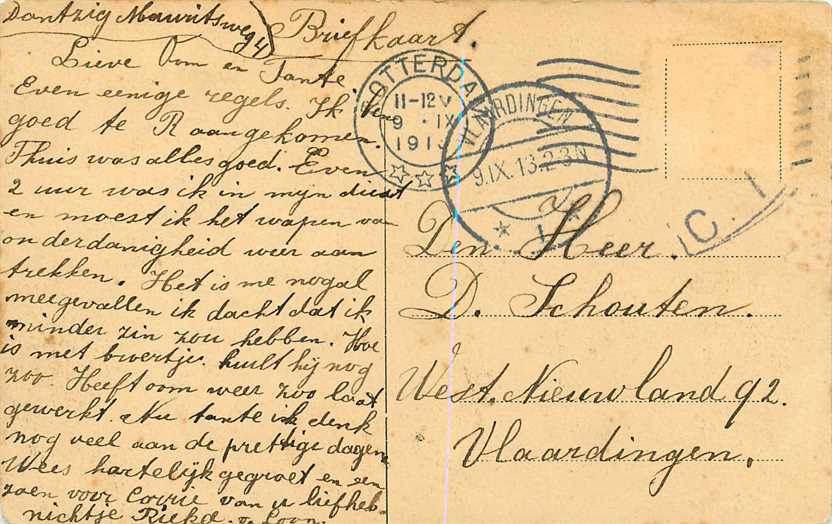 Dantzig Mauritsweg 41
Briefkaart.
Lieve Oom en Tante.
Even eenige regels. Ik ben
goed te R aangekomen.
Thuis was alles goed. Even
2 uur was ik in mijn dienst
en moest ik het wapen van
onderdanigheid weer aan
trekken. Het is me nogal
meegevallen ik dacht dat ik
minder zin zou hebben. Hoe
is met huilt hij nog
zoo. Heeft oom weer zoo laat
gewerkt. Nu tante ik denk
nog veel aan de prettige dagen
Wees hartelijk gegroet en een
zoen voor Corrie van u liefheb-
nichtje Riekd. v. Loon.
ROTTERDA
11-12V
9 · IX
191
VLAARDINGEN
9.IX.13.2-3N
1
C. 1
Den Heer.
D. Schouten.
West. Nieuwland 92.
Vlaardingen.